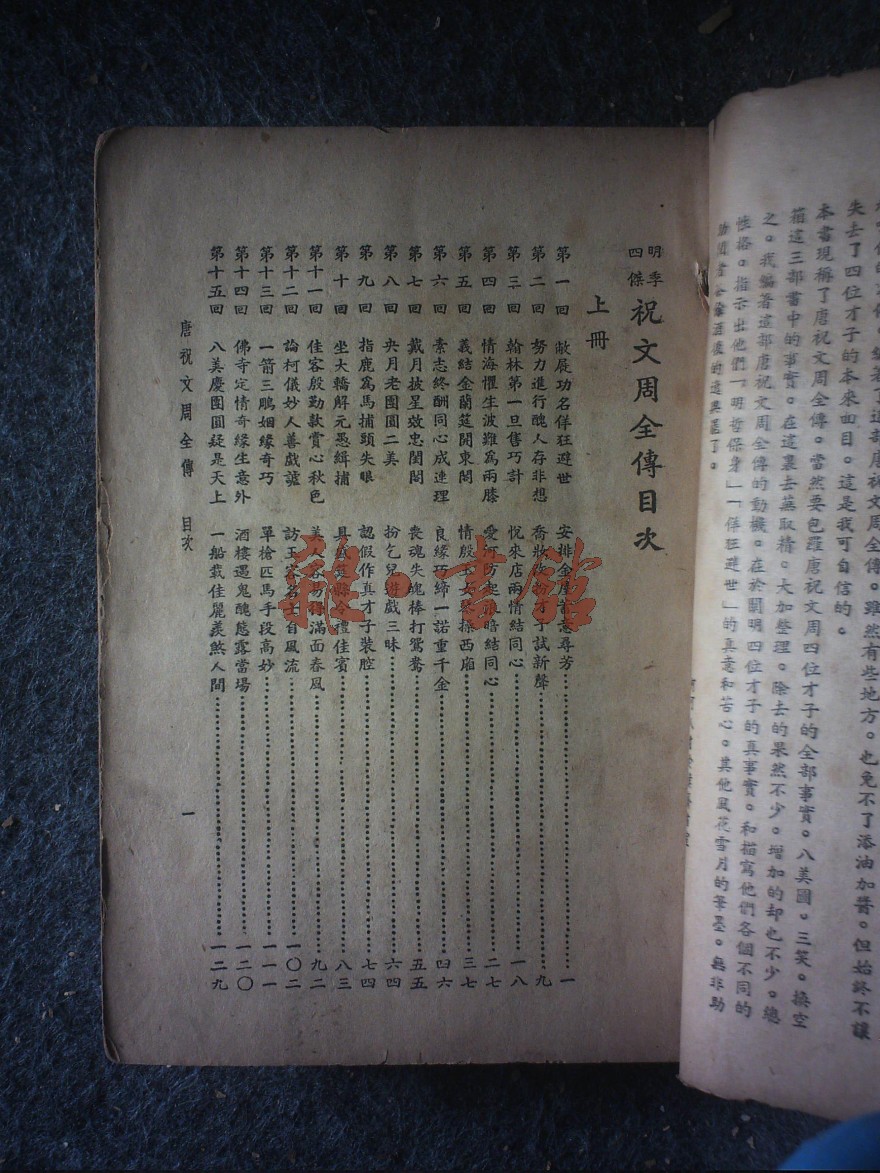 失去了四位才子的本來面目。這是我可自信的。
本書現稱了唐祝文周全傳。當然要包羅唐祝文周四位才子的全部事實。八美圖。三笑。換空
箱這三部書中的事實。在這裏去蕪取精。大加整理。除去的果然不少。增加的却也不少。總
之。我編著這部唐祝文周全傳的動機。在於闡明四位才子的真事實。和描寫他們各個不同的
性格。指示出他們「明哲保身」「佯狂避世」的真意和苦心。其他風花雪月的筆墨。無非助
明季四傑 祝文周全傳目次
上冊
第一回 敝屣功名佯狂避世 安排金屋 尋芳 一
第二回 努力進行醜人存非想 喬妝 扮才子試新聲 九
第三回 翰林第一旦售巧計 悅來店兩情結同心 一八
第四回 情海懼生波難爲兩膝 愛河防 暗結同心 二七
第五回 義結金蘭筵開東閣 情殷 操西廂 三七
第六回 素志終酬同心成連理 良緣巧締一諾重千金 四六
第七回 戴月披星效忠閨閣 喪魂失魄棒打鴛鴦 五五
第八回 央月老團圓二美 扮乞兒遊戲三昧 六四
第九回 指鹿爲馬捕頭失眼 認假作真才子裝腔 七四
第十回 坐大轎解元愚緝捕 具盛筵縣令禮佳賓 八三
第十一回 佳客殷勤歎賞心秋色 美人容易得滿面春風 九二
第十二回 論柯儀妙人善戲謔 訪王家名士自風流 一〇二
第十三回 一箭三鵰姻緣奇巧 單槍匹馬手段高妙 一一一
第十四回 佛寺定情奇緣生意外 酒樓遇鬼醜態露當場 一二〇
第十五回 八美慶團圓疑是天上 一船載佳麗羨煞人間 一二九
唐祝文周全傳 目次 一
雜·書館